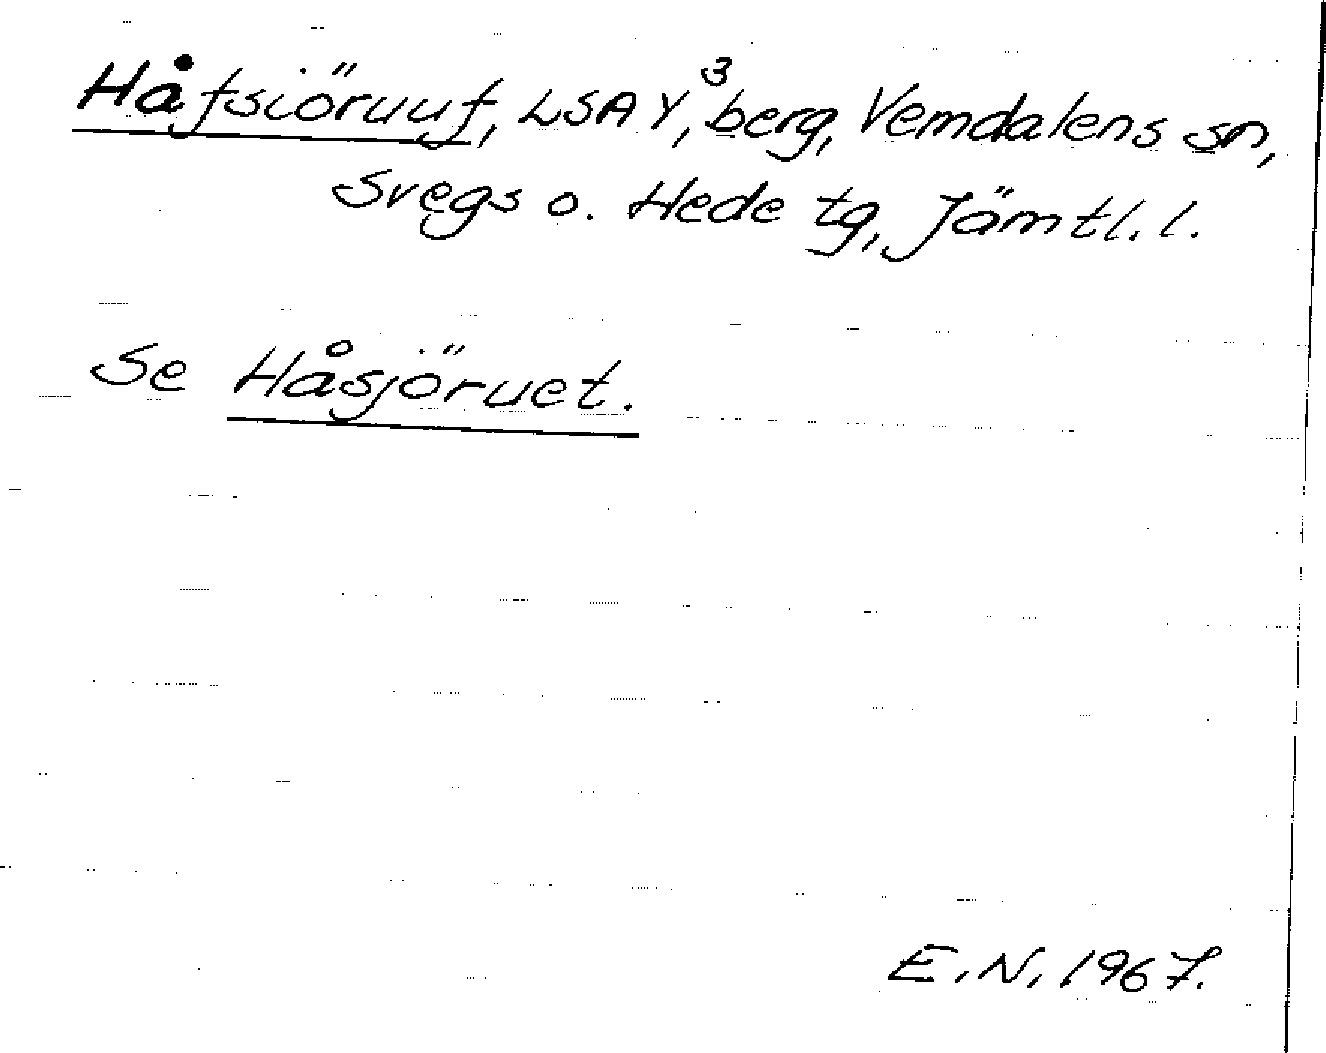 Håfsiöruuf, LSA Y³, berg, Vemdalens sn,
Svegs o. Hede tg, Jämtl. l.
Se Håsjöruet.
E.N. 1967.